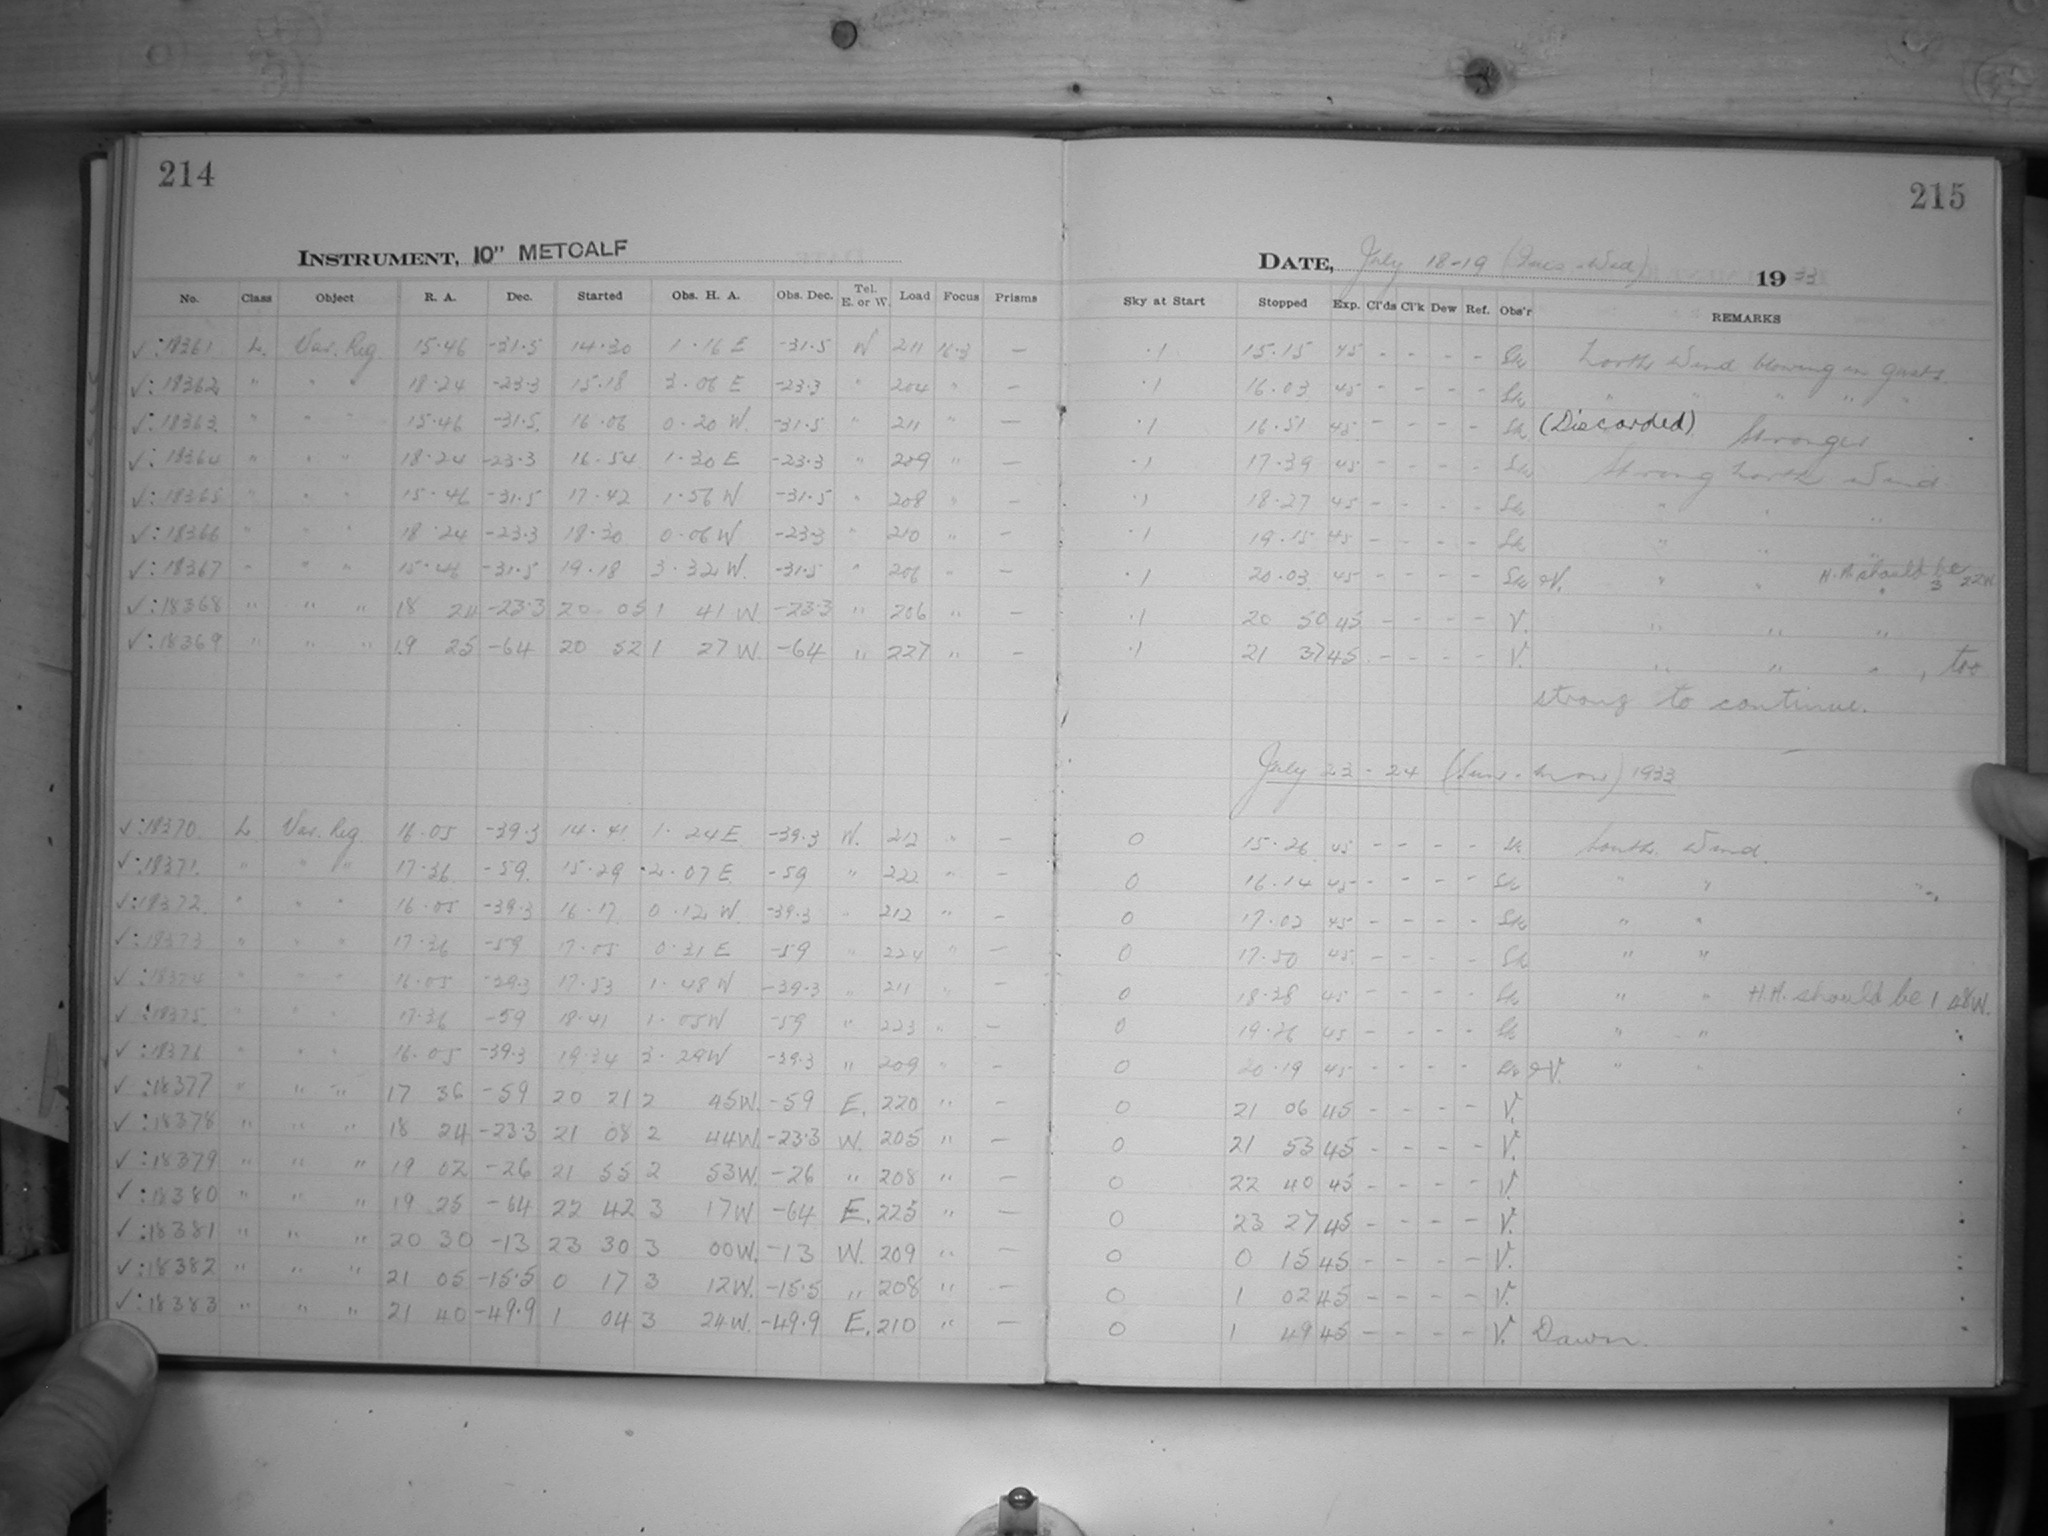 214
215
INSTRUMENT, 10" METCALF
DATE, July 18-19 (Tues-Wed) 1933
No. Class Object R. A. Dec. Started Obs. H. A. Obs. Dec. Tel. E. or W. Load Focus Prisms Sky at Start Stopped Exp. Cl'ds Cl'k Dew Ref. Obs'r REMARKS
✓: 18361 L. Var. Reg. 15·46 -31·5 14·30 1·16 E -31·5 W 211 16·3 — ·1 15·15 45 - - - - Sk North Wind blowing in gusts
✓: 18362 " " " 18·24 -23·3 15·18 3·06 E -23·3 " 204 " — ·1 16·03 45 - - - - Sk " " " " "
✓: 18363 " " " 15·46 -31·5 16·06 0·20 W. -31·5 " 211 " — ·1 16·51 45 - - - - Sk (Discarded) Stronger
✓: 18364 " " " 18·24 -23·3 16·54 1·30 E -23·3 " 209 " — ·1 17·39 45 - - - - Sk Strong North Wind
✓: 18365 " " " 15·46 -31·5 17·42 1·56 W -31·5 " 208 " — ·1 18·27 45 - - - - Sk " " "
✓: 18366 " " " 18·24 -23·3 18·30 0·06 W -23·3 " 210 " — ·1 19·15 45 - - - - Sk " " "
✓: 18367 " " " 15·46 -31·5 19·18 3·32 W. -31·5 " 206 " — ·1 20·03 45 - - - - Sk & V. " " " H.A. should be 3 22W
✓: 18368 " " " 18 24 -23·3 20 05 1 41 W. -23·3 " 206 " — ·1 20 50 45 - - - - V. " " "
✓: 18369 " " " 19 25 -64 20 52 1 27 W. -64 " 227 " — ·1 21 37 45 - - - - V. " " " , too
strong to continue.
July 23-24 (Sun-Mon) 1933
✓: 18370 L Var. Reg. 16·05 -39·3 14·41 1·24 E -39·3 W. 212 " — 0 15·26 45 - - - - Sk South Wind.
✓: 18371 " " " 17·36 -59 15·29 2·07 E -59 " 222 " — 0 16·14 45 - - - - Sk " "
✓: 18372 " " " 16·05 -39·3 16·17 0·12 W. -39·3 " 212 " — 0 17·02 45 - - - - Sk " "
✓: 18373 " " " 17·36 -59 17·05 0·31 E -59 " 224 " — 0 17·50 45 - - - - Sk " "
✓: 18374 " " " 16·05 -39·3 17·53 1·48 W -39·3 " 211 " — 0 18·38 45 - - - - Sk " " H.A. should be 1 48W.
✓: 18375 " " " 17·36 -59 18·41 1·05 W -59 " 223 " — 0 19·26 45 - - - - Sk " "
✓: 18376 " " " 16·05 -39·3 19·34 3·29 W -39·3 " 209 " — 0 20·19 45 - - - - Sk & V. " "
✓: 18377 " " " 17 36 -59 20 21 2 45 W. -59 E. 220 " — 0 21 06 45 - - - - V.
✓: 18378 " " " 18 24 -23·3 21 08 2 44 W. -23·3 W. 205 " — 0 21 53 45 - - - - V.
✓: 18379 " " " 19 02 -26 21 55 2 53 W. -26 " 208 " — 0 22 40 45 - - - - V.
✓: 18380 " " " 19 25 -64 22 42 3 17 W -64 E. 225 " — 0 23 27 45 - - - - V.
✓: 18381 " " " 20 30 -13 23 30 3 00 W. -13 W. 209 " — 0 0 15 45 - - - - V.
✓: 18382 " " " 21 05 -15·5 0 17 3 12 W. -15·5 " 208 " — 0 1 02 45 - - - - V.
✓: 18383 " " " 21 40 -49·9 1 04 3 24 W. -49·9 E. 210 " — 0 1 49 45 - - - - V. Dawn.